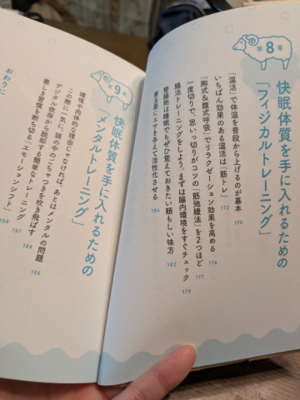 第8章
快眠体質を手に入れるための
「フィジカルトレーニング」
「温活」で体温を普段から上げるのが基本 170
いちばん効果のある温活は「筋トレ」 172
「胸式&腹式呼吸」でリラクゼーション効果を高める 174
一度切りで、思いっ切りがコツの「筋弛緩法」を2つほど 177
腸活トレーニングをしよう。まずは腸内環境をすぐチェック 179
整腸剤は睡眠でもぜひ覚えておきたい頼もしい味方 182
184
第9章
快眠体質を手に入れるための
「メンタルトレーニング」
環境や肉体的な理由じゃなければ、あとはメンタルの問題 186
この際に一気に、頭の中の「ごちゃつき」を吹き飛ばす 188
デジタル依存から脱却する簡単なトレーニング
悪しき習慣を断ち切る「エモーションシフト」
おわりに